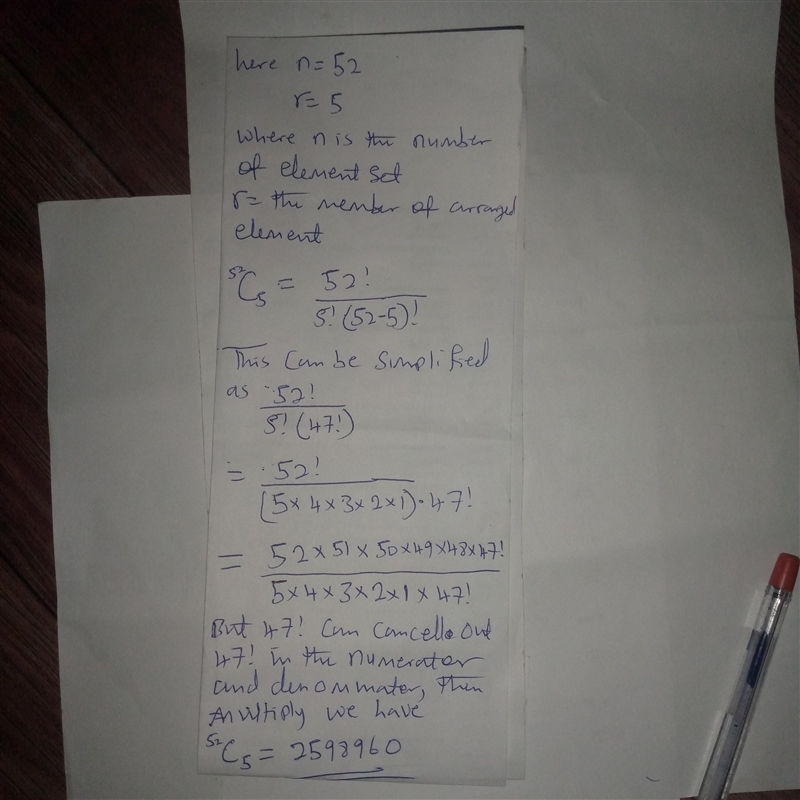 here n = 52
r = 5
where n is the number
of element set
r = the member of arranged
element
⁵²C₅ = 52! / 5! (52-5)!
This can be simplified
as 52! / 5! (47!)
= 52! / (5 × 4 × 3 × 2 × 1) · 47!
= 52 × 51 × 50 × 49 × 48 × 47! / 5 × 4 × 3 × 2 × 1 × 47!
But 47! can cancelle out
47! in the numerator
and denommator, then
multiply we have
⁵²C₅ = 2598960